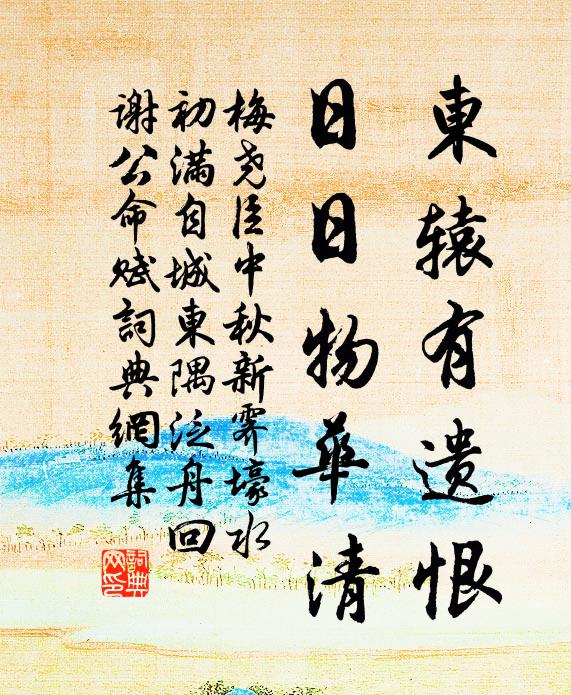 東辕有遗恨
日日物華清
梅尧臣中秋新霁壕水
初滿自城東隅泛舟回
谢公命赋詞典網集
詞典
网印